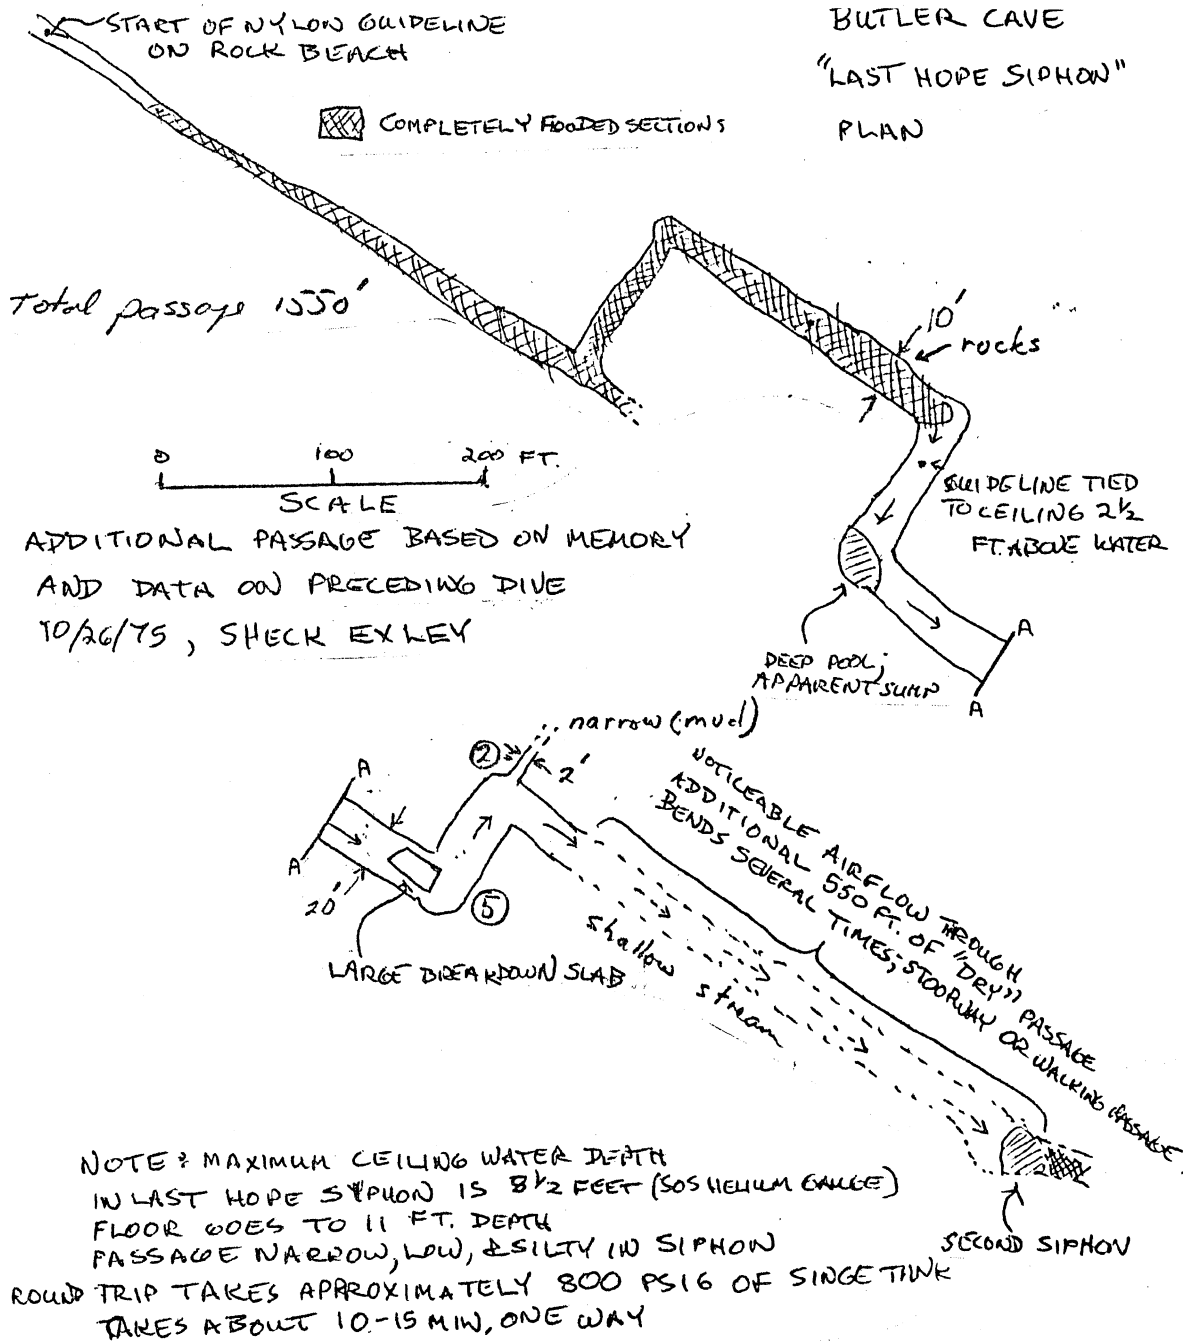 START OF NYLON GUIDELINE
ON ROCK BEACH
BUTLER CAVE
"LAST HOPE SIPHON"
PLAN
COMPLETELY FLOODED SECTIONS
Total passage 1550'
10'
rocks
0 100 200 FT.
SCALE
GUIDELINE TIED
TO CEILING 2½
FT. ABOVE WATER
ADDITIONAL PASSAGE BASED ON MEMORY
AND DATA ON PRECEDING DIVE
10/26/75, SHECK EXLEY
A
A
DEEP POOL;
APPARENT SUMP
narrow (mud)
2
2'
A
A
20'
5
LARGE BREAKDOWN SLAB
NOTICEABLE AIRFLOW THROUGH
ADDITIONAL 550 FT. OF "DRY" PASSAGE
BENDS SEVERAL TIMES; STOOPWAY OR WALKING PASSAGE
shallow stream
SECOND SIPHON
NOTE: MAXIMUM CEILING WATER DEPTH
IN LAST HOPE SYPHON IS 8½ FEET (SOS HELIUM GAUGE)
FLOOR GOES TO 11 FT. DEPTH
PASSAGE NARROW, LOW, & SILTY IN SIPHON
ROUND TRIP TAKES APPROXIMATELY 800 PSIG OF SINGE TANK
TAKES ABOUT 10-15 MIN, ONE WAY